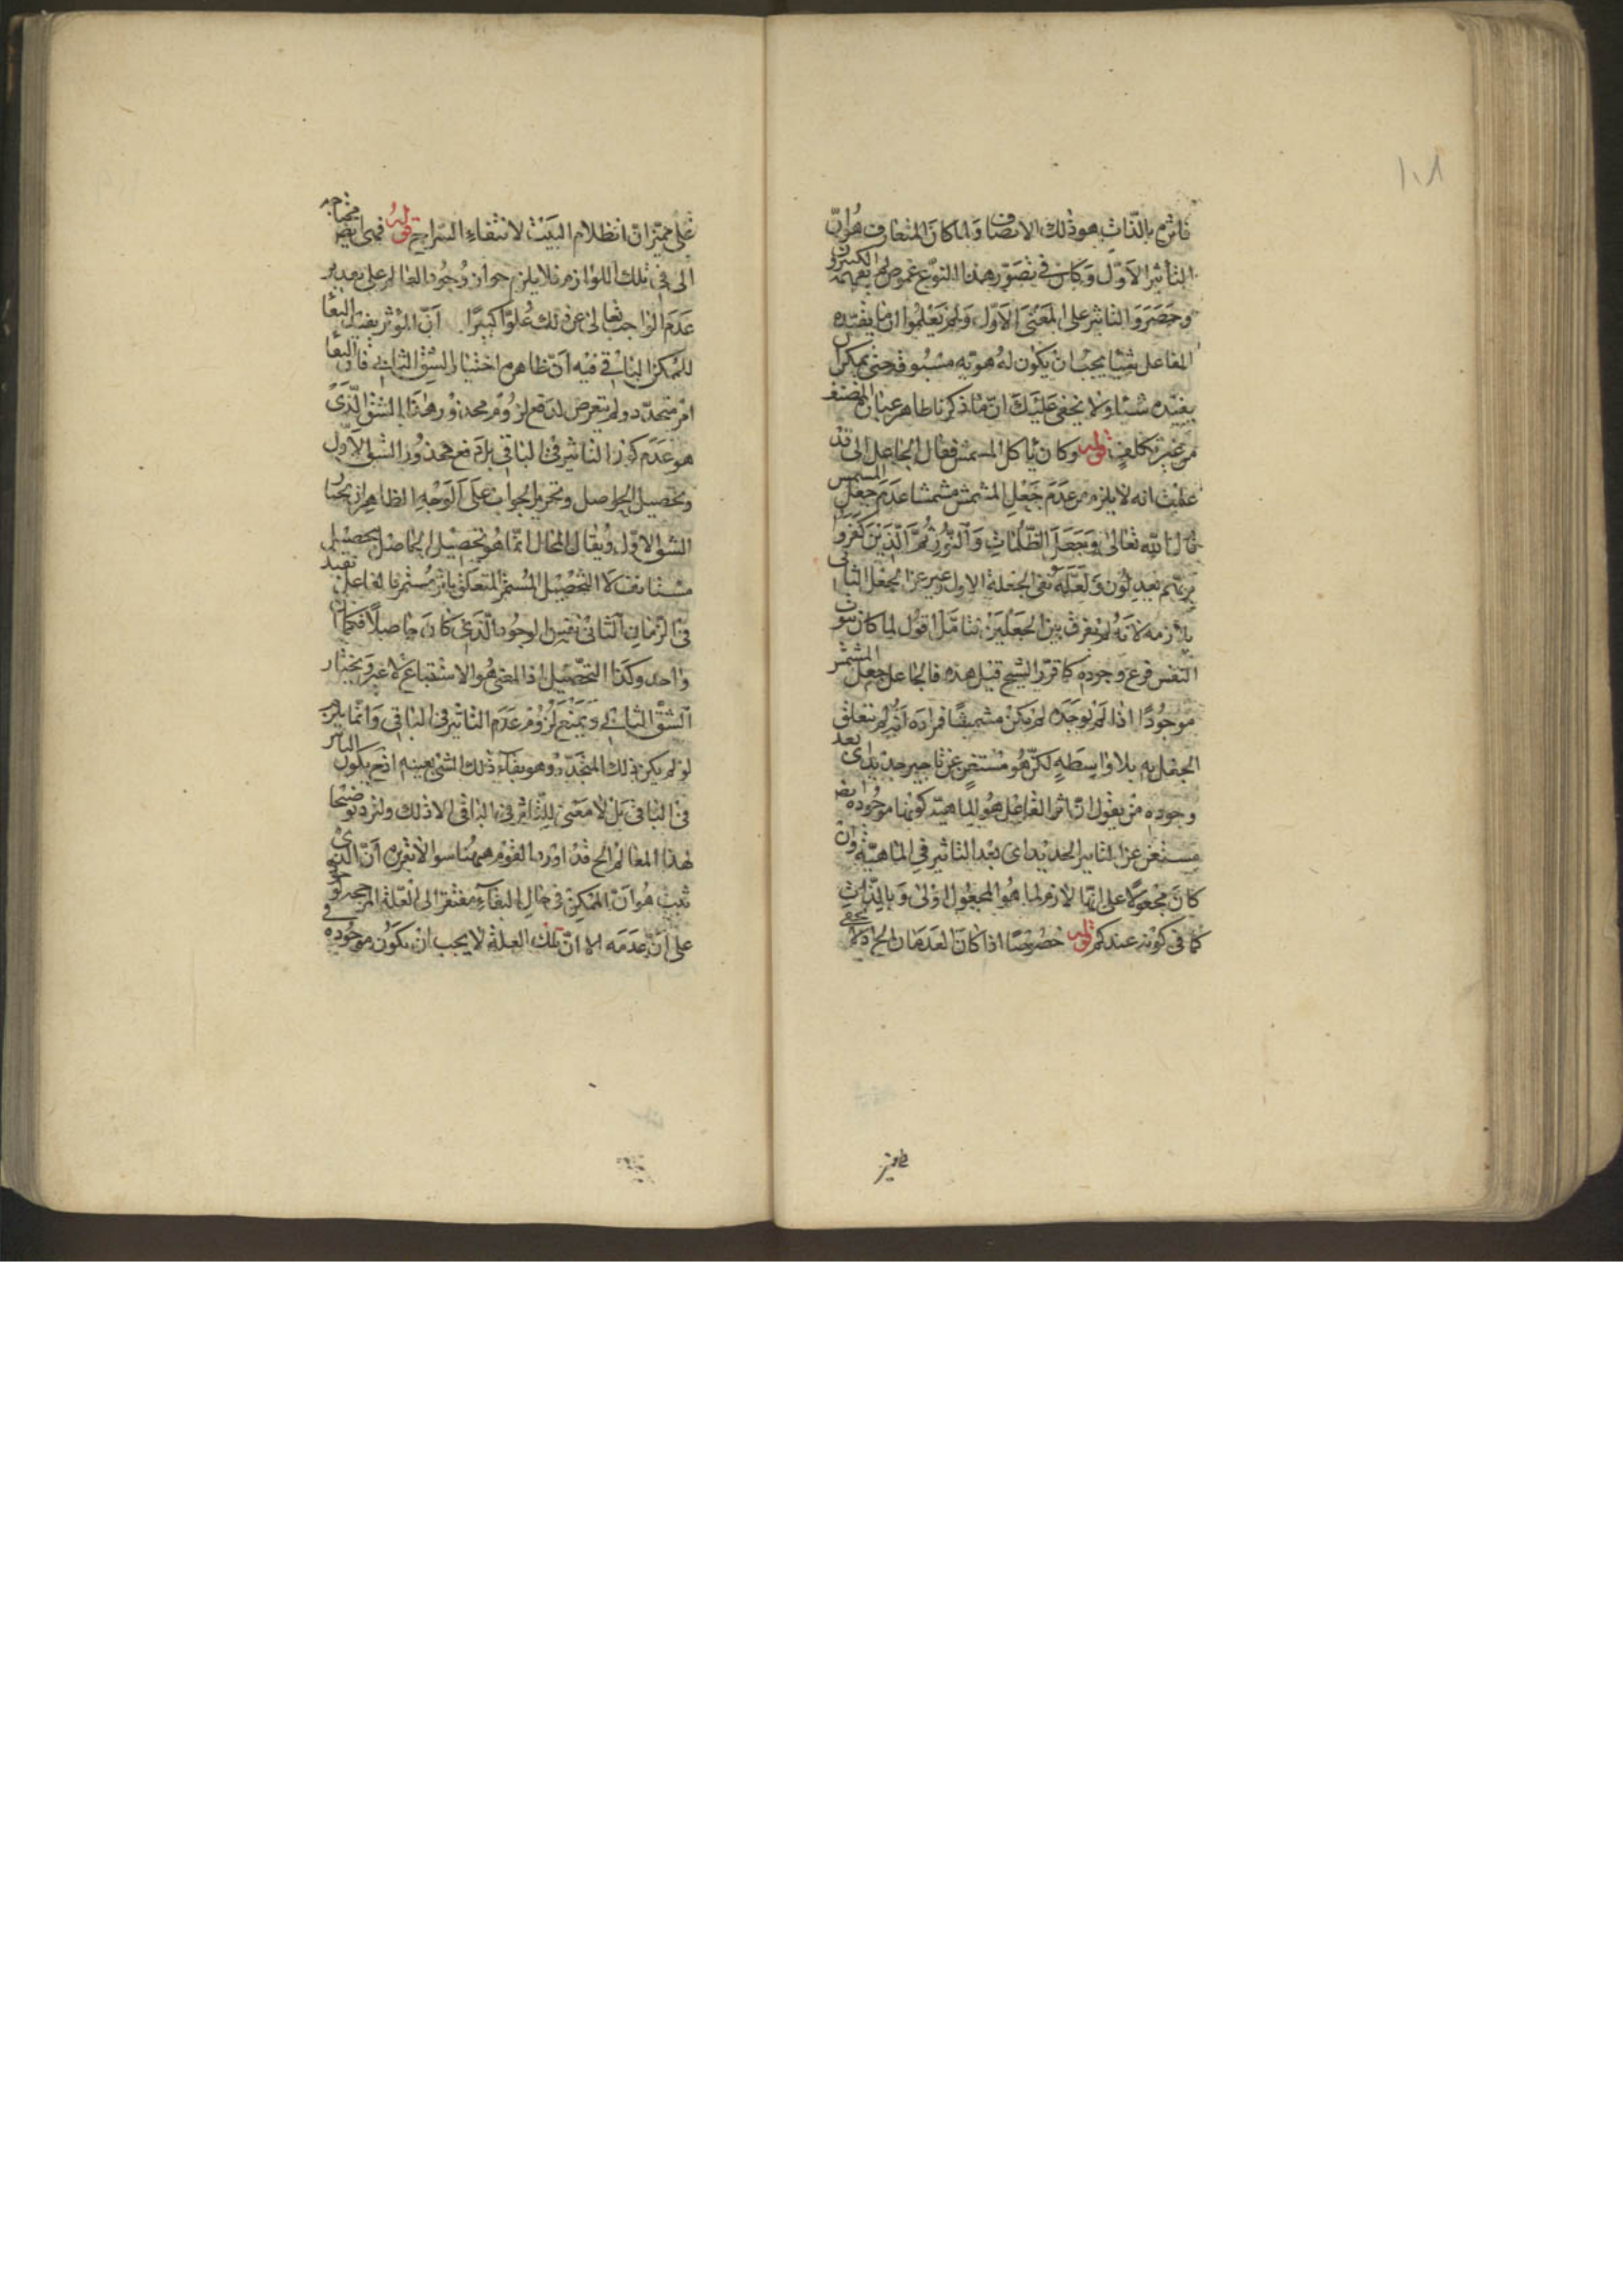 ١٠٨
بالذات هو ذلك الاتصاف ولما كان المتعارف هو ان
التأثير الاول وكان في تصور هذا النوع غموض لم يفهمه الكثيرون
وحصروا التاثير على المعنى الاول ولم يعلموا ان ما يفيده
الفاعل شيئا يجب ان يكون له هوية مسبوقة حتى يمكن
يفيده شيئا ولا يخفى عليك ان ما ذكرنا ظاهر عبارة المصنف
من غير تكلف قوله وكان ياكل المشمش فقال الجاعل الى قد
عرفت انه لا يلزم من عدم جعل المشمش مشمشا عدم جعل المشمش
قال الله تعالى وجعل الظلمات والنور ثم الذين كفروا
بربهم يعدلون ولعله نفى الجعل الاول وعبر عن الجعل الثاني
بلازمه لانه لم يفرق بين الجعلين تأمل اقول لما كان ثبوت
النفس فرع وجوده كما قرر الشيخ قبل هذه فالجاعل جعل المشمش
موجودا اذا لم يوجده لم يكن مشمشا فمراده انه لم يتعلق
الجعل به بلا واسطة لكن هو مستغن عن تأثير جديد اى بعد
وجوده من يقول ان اثر الفاعل هو الماهية كونها موجودة ايض
مستغن عن التاثير الجديد اى بعد التاثير في الماهية وان
كان مجعولا على انها لازم لما هو المجعول اولى وبالذات
كما في كونه عندكم قوله خصوصا اذا كان العدمان الخ اذ لا يخفى
على مميز ان اظلام البيت لانتفاء السراج قوله فهى ايض محتاجه
الى في تلك اللوازم فلا يلزم جواز وجود العالم على تقدير
عدم الواجب تعالى عن ذلك علوا كبيرا ان المؤثر يفيد البقاء
للممكن الباقي فيه ان ظاهره اختيار الشق الثاني فان البقاء
امر متجدد ولم يتعرض لدفع لزوم محذور هذا الشق الذى
هو عدم كون التاثير في الباقي بل دفع محذور الشق الاول
وتحصيل الحاصل وتحرير الجواب على الوجه الظاهر ان يختار
الشق الاول ويقال المحال انما هو تحصيل الحاصل بتحصيل
مستانف لا التحصيل المستمر المتعلق باثر مستمر فالفاعل يفيد
في الزمان الثاني نفس الوجود الذي كان حاصلا
واحد وكذا التحصيل اذ المعنى هو الاستتباع لا غير ويختار
الشق الثاني ويمنع لزوم عدم التاثير في الباقي وانما يلزم
لو لم يكن ذلك المتجدد وهو بقاء ذلك الشئ بعينه اذ ح يكون التاثير
في الباقي بل لا معنى للتاثير في الباقي الا ذلك ولنزد توضيحا
لهذا المقام الخ قد اورد القوم ههنا سوالا تقريره ان الذي
ثبت هو ان الممكن في حال البقاء مفتقر الى العلة المرجحة
على عدمه الا ان تلك العلة لا يجب ان يكون موجودة في